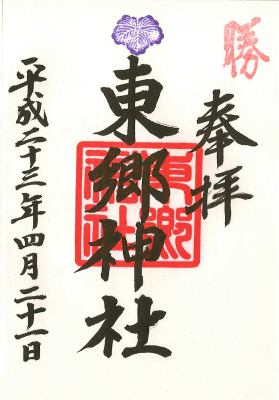 勝
奉拝
東郷神社
東郷神社
平成二十三年四月二十一日